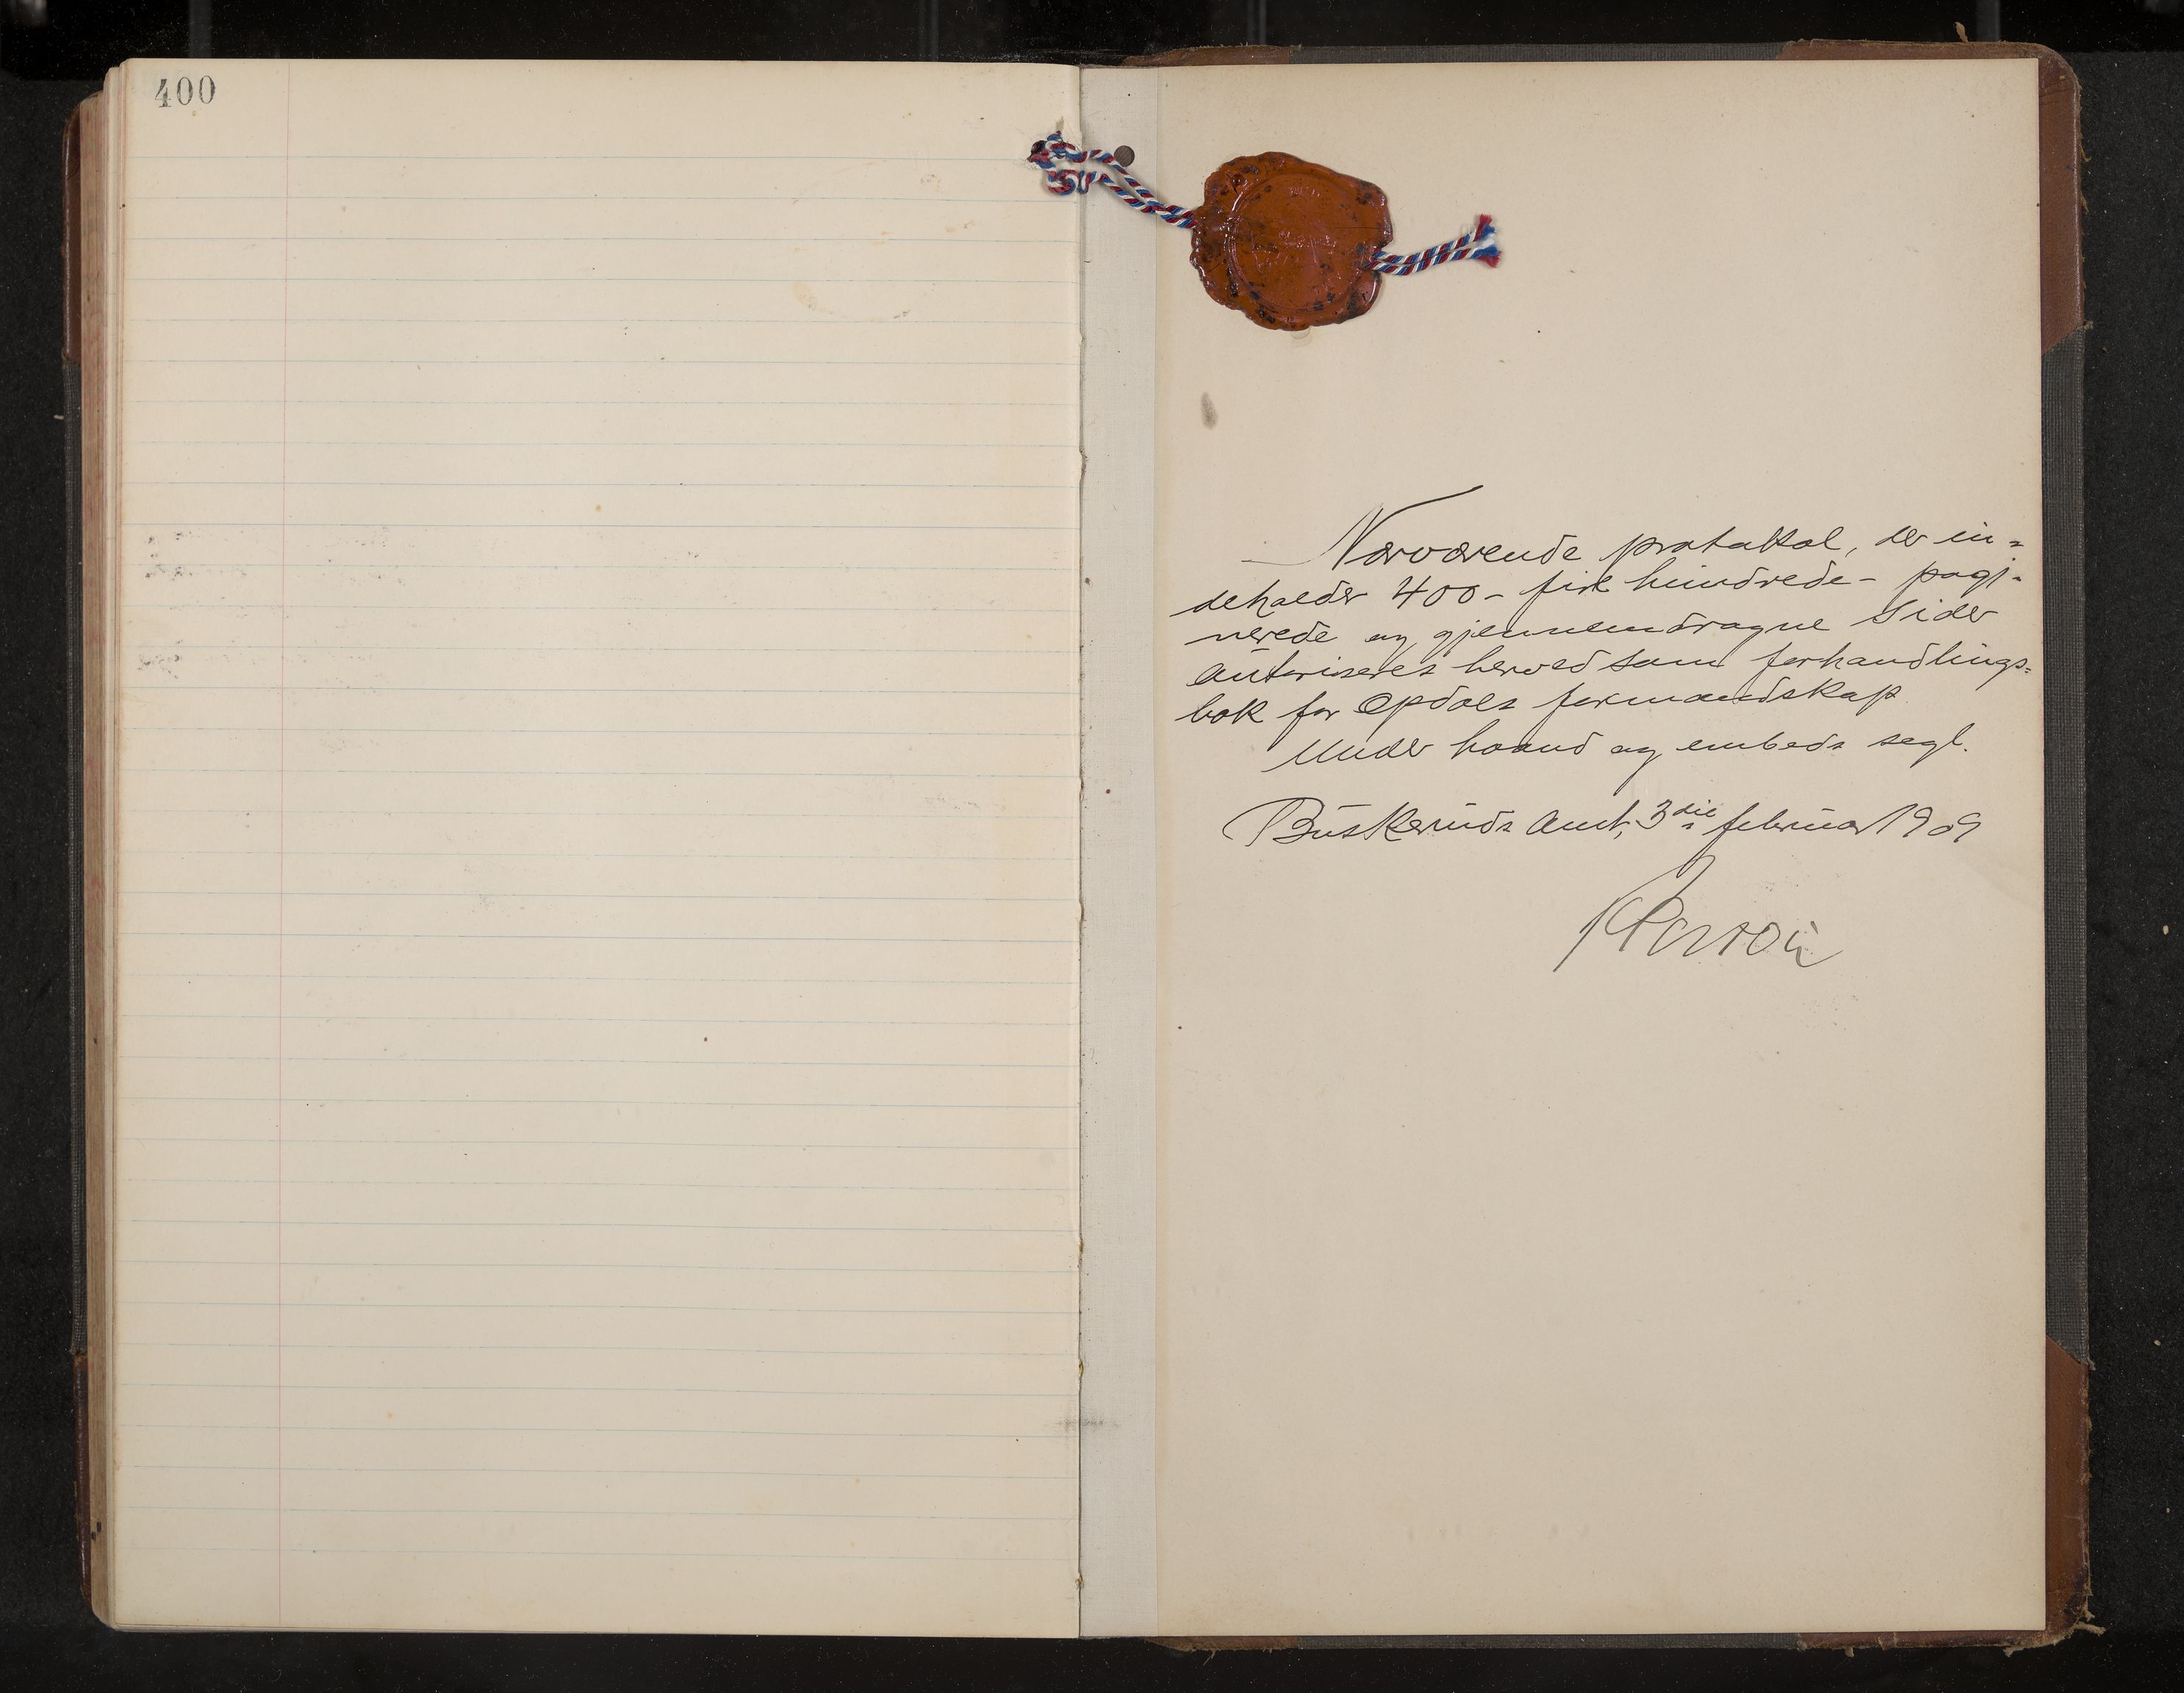 400
Nærværende protokol, der in=
deholder 400 - fire hundrede - pagi-
nerede og gjennemdragne sider
autoriseres herved som forhandlings=
bok for Opdals formandskap
Under haand og embeds segl.
Buskeruds amt, 3die februar 1909